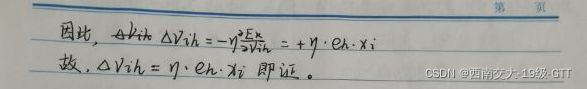 第 页
因此, ΔVih ΔVih = -η ∂Ex/∂Vih = +η·eh·xi
故, ΔVih = η·eh·xi 即证。
CSDN @西南交大-19级-GTT